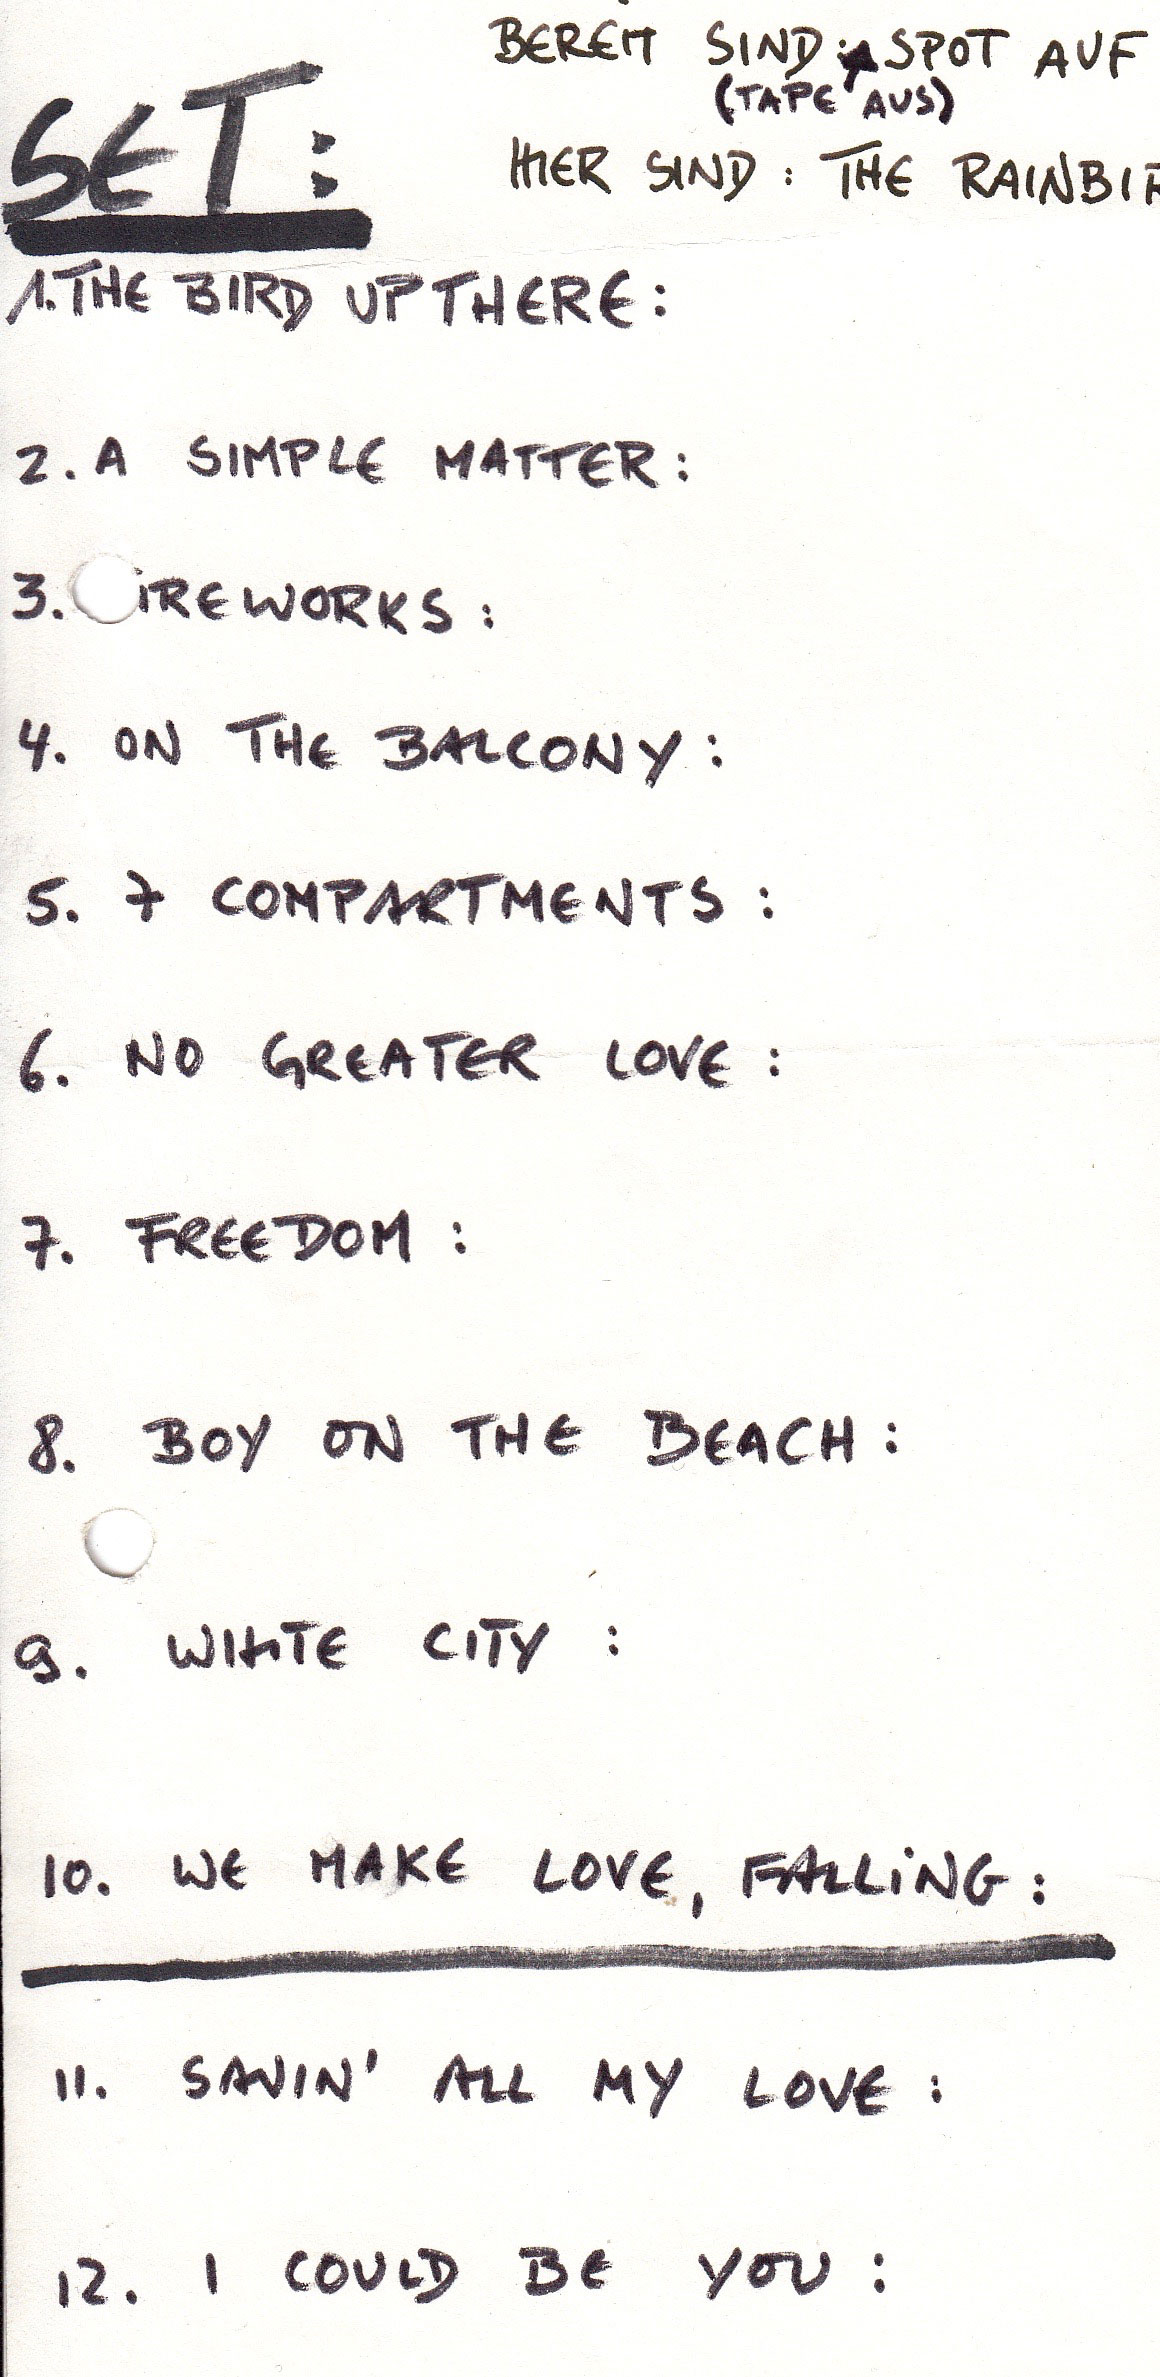 BEREIT SIND: SPOT AUF
(TAPE AUS)
SET:
HIER SIND: THE RAINBIR
1. THE BIRD UP THERE:
2. A SIMPLE MATTER:
3. IREWORKS:
4. ON THE BALCONY:
5. 7 COMPARTMENTS:
6. NO GREATER LOVE:
7. FREEDOM:
8. BOY ON THE BEACH:
9. WHITE CITY:
10. WE MAKE LOVE, FALLING:
11. SAVIN' ALL MY LOVE:
12. I COULD BE YOU: